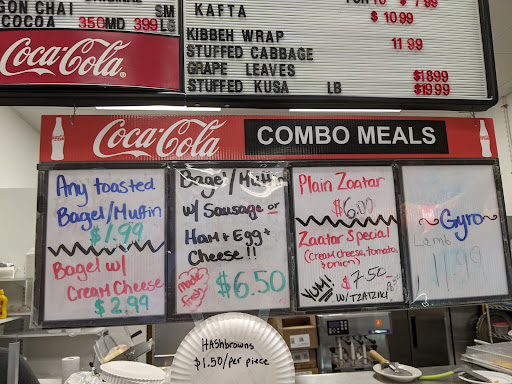 GON CHAI SM
COCOA 350MD 399LG
Coca-Cola
KAFTA
$10.99
KIBBEH WRAP 11 99
STUFFED CABBAGE
GRAPE LEAVES $1899
STUFFED KUSA LB $1999
Coca-Cola
COMBO MEALS
Any toasted
Bagel/Muffin
$1.99
Bagel w/
Cream Cheese
$2.99
Bagel/Muffin
w/ Sausage or
Ham + Egg +
Cheese!!
made
fresh
$6.50
Plain Zaatar
$6.00
Zaatar Special
(Cream cheese, tomato,
& onion)
$7.50
YUM!
W/TZATZIKI
~Gyro~
Lamb
11.99
HAShbrowns
$1.50/per piece